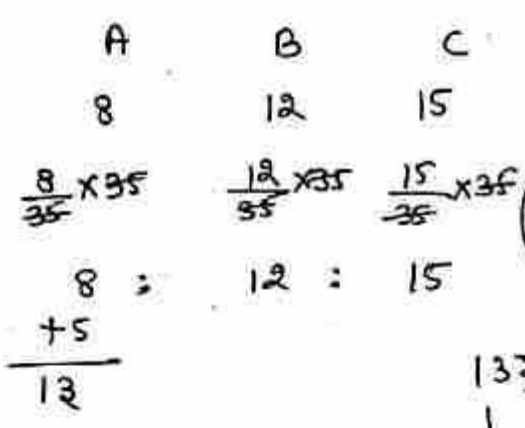 A B C
8 12 15
8/35 ×35 12/35 ×35 15/35 ×35
8 : 12 : 15
+5
13